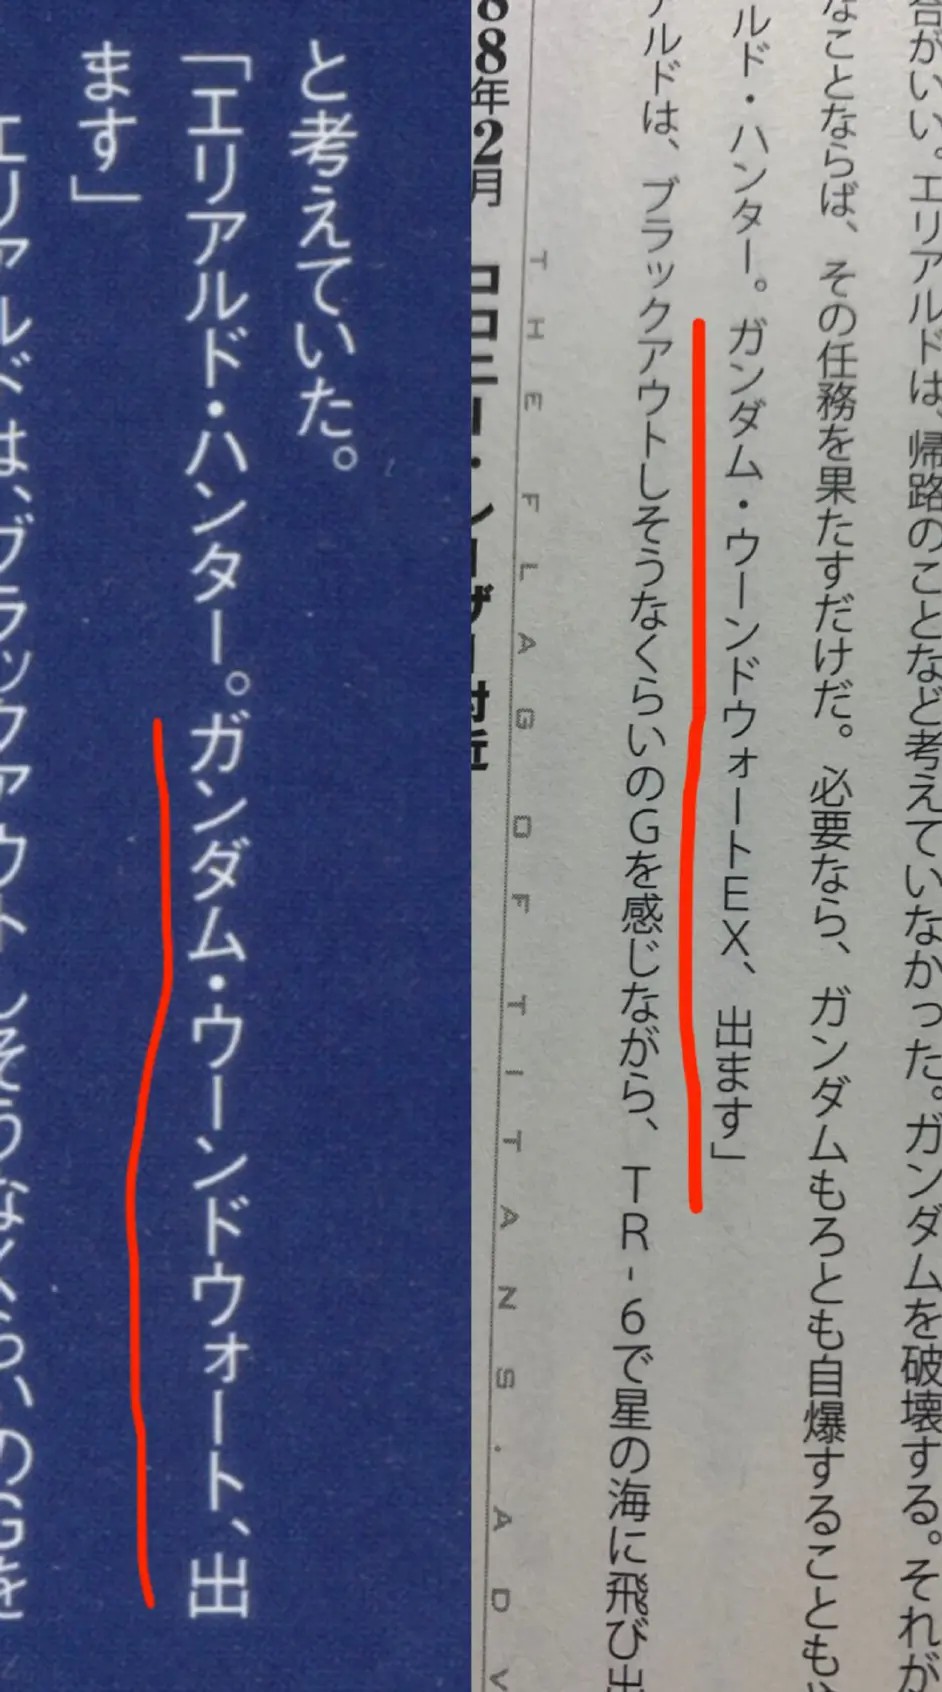 と考えていた。
「エリアルド・ハンター。ガンダム・ウーンドウォート、出
ます」
エリアルドは、ブラックアウトしそうなくらいのGを
答がいい。エリアルドは、帰路のことなど考えていなかった。ガンダムを破壊する。それが
なことならば、その任務を果たすだけだ。必要なら、ガンダムもろとも自爆することも
ルド・ハンター。ガンダム・ウーンドウォートEX、出ます」
アルドは、ブラックアウトしそうなくらいのGを感じながら、TR-6で星の海に飛び出
THE FLAG OF TITANS. A D V
88年2月 コロニー・レーザー付近